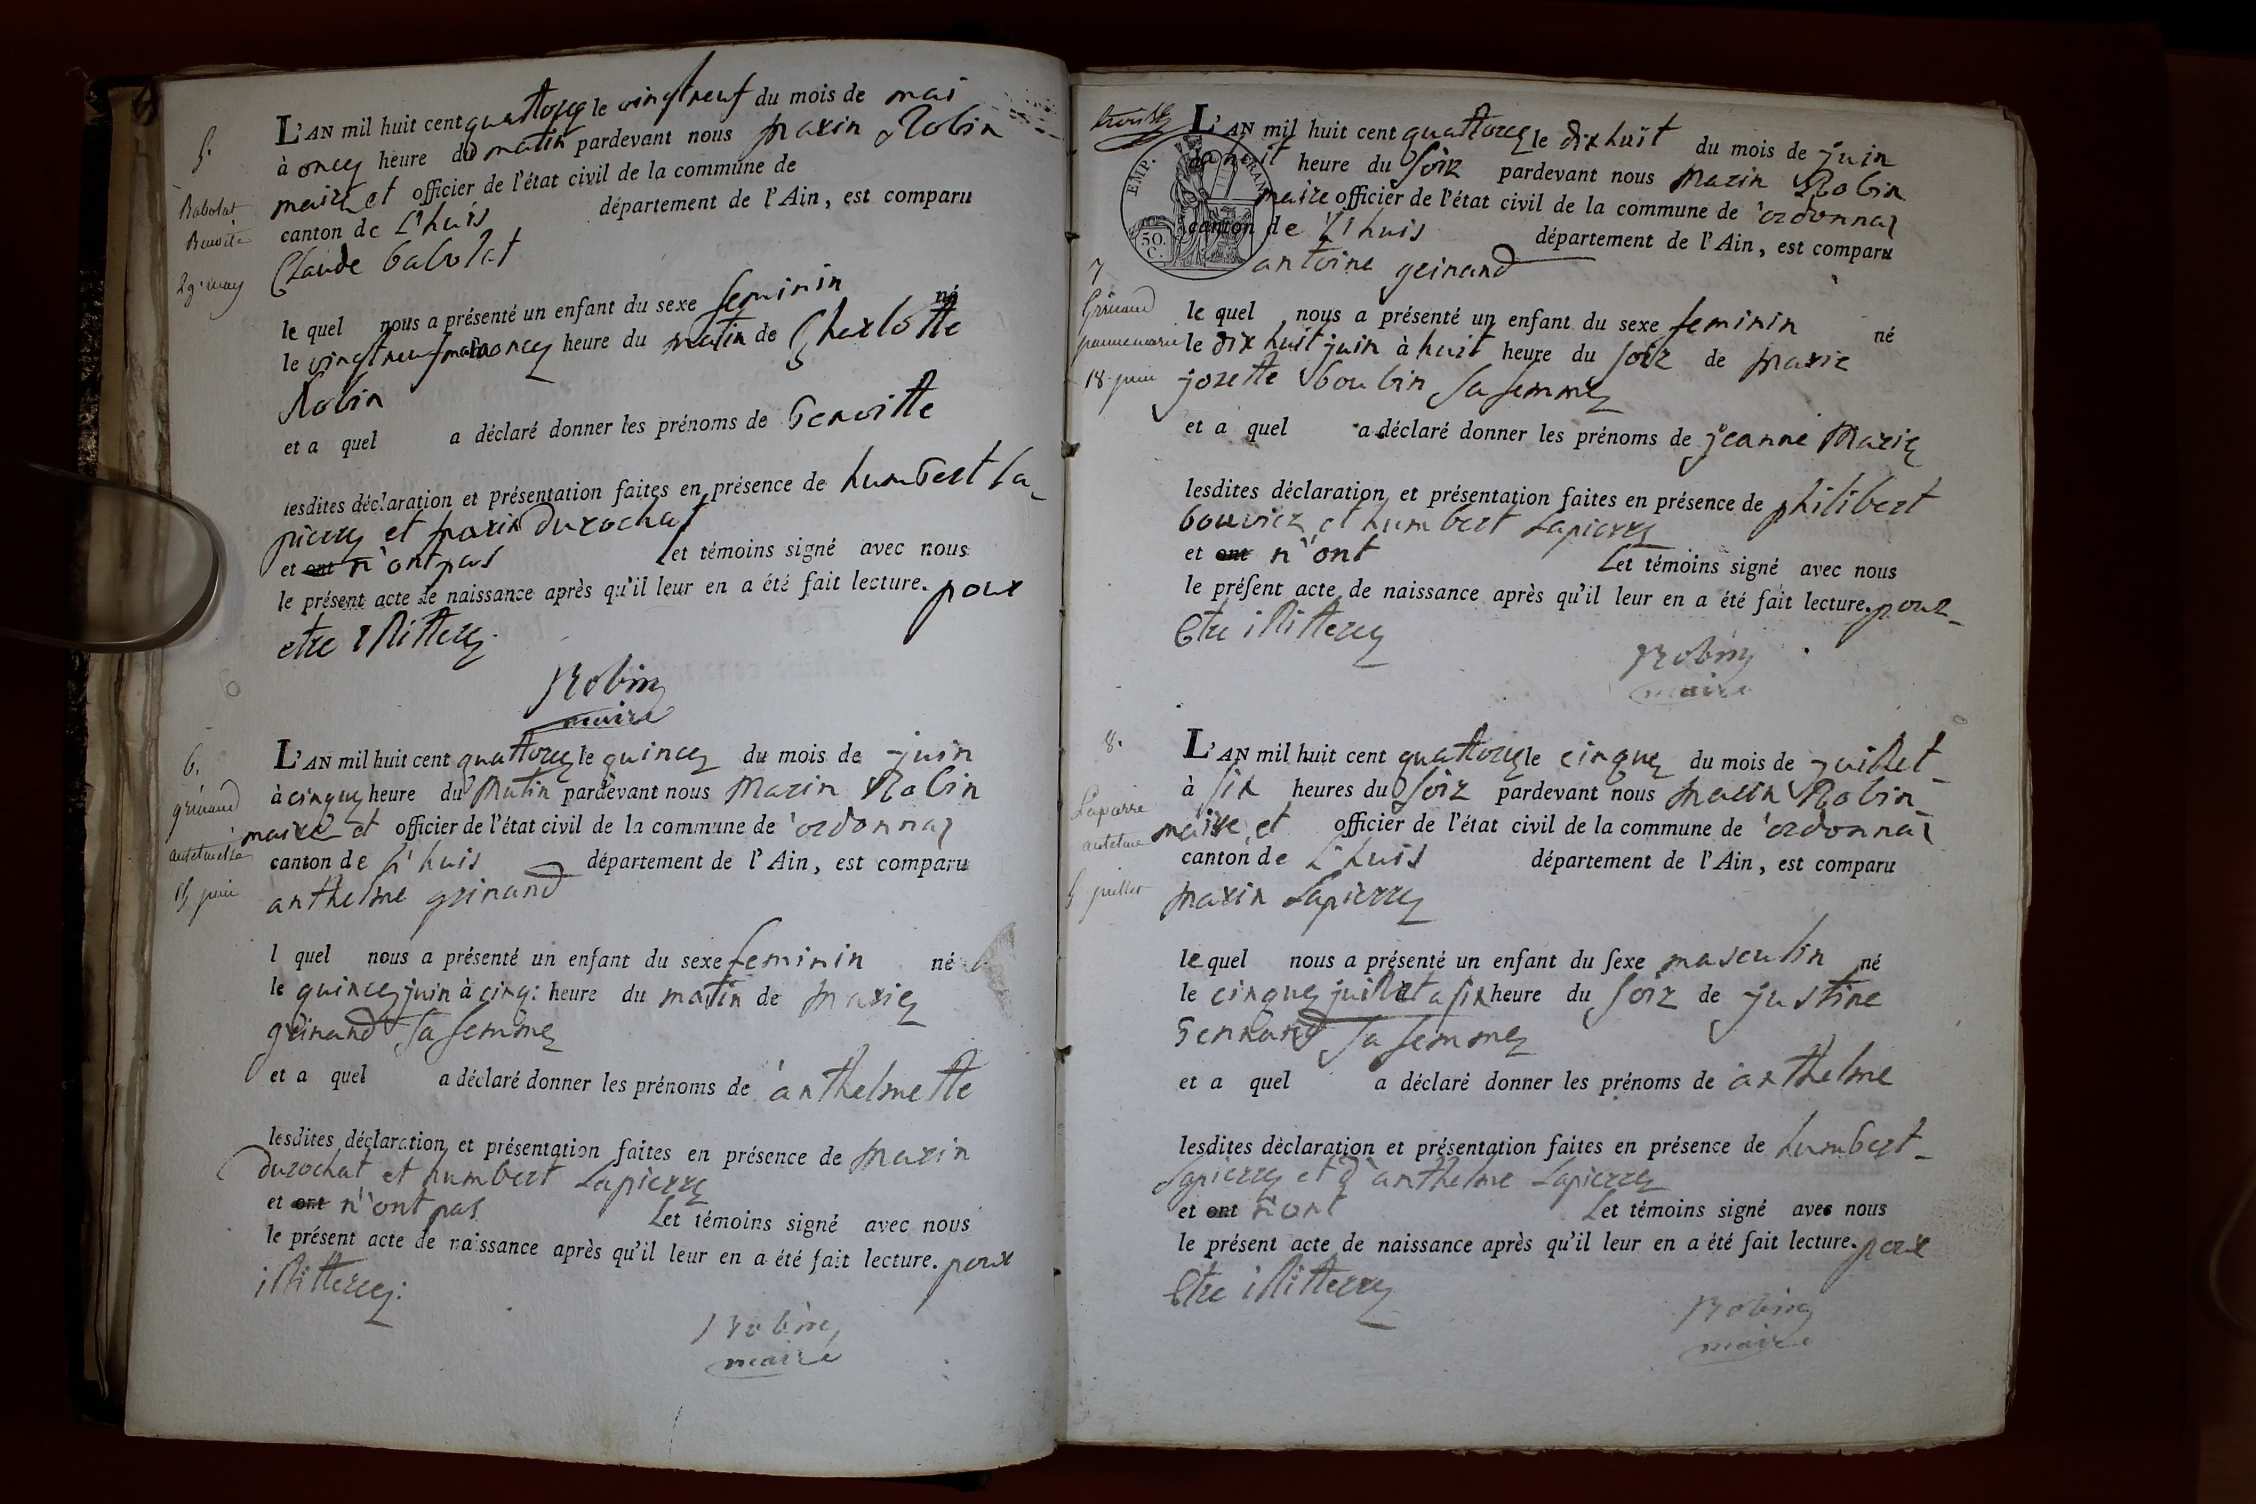 5.
Babolat
Benoite
29. may
L'AN mil huit cent quattorze le vingtneuf du mois de mai
à oncy heure du matin pardevant nous Marin Robin
maire et officier de l'état civil de la commune de
canton de L'huis département de l'Ain, est comparu
Claude babolat
le quel nous a présenté un enfant du sexe feminin né
le vingtneuf mai a oncy heure du matin de Charlotte
Robin
et a quel a déclaré donner les prénoms de benoitte
lesdites déclaration et présentation faites en présence de humbert la-
pierre et marin durochat
et ont n'ont pas Let témoins signé avec nous
le présent acte de naissance après qu'il leur en a été fait lecture. pour
etre illitterez.
Robin
maire
6.
grinand
antelmette
15 juin
L'AN mil huit cent quattorze le quince du mois de juin
à cinque heure du Matin pardevant nous Marin Robin
maire et officier de l'état civil de la commune de ordonnaz
canton de L'huis département de l'Ain, est comparu
anthelme grinand
l quel nous a présenté un enfant du sexe feminin né
le quince juin à cinq: heure du matin de Marie
grinand sa femme
et a quel a déclaré donner les prénoms de anthelmette
lesdites déclaration et présentation faites en présence de marin
durochat et humbert Lapierre
et ont n'ont pas Let témoins signé avec nous
le présent acte de naissance après qu'il leur en a été fait lecture. pour
illitterez:
Robin
maire
EMP. FRAN
50. C.
7
Grinand
jeanne marie
18 juin
L'AN mil huit cent quattorze le dix huit du mois de juin
à huit heure du soir pardevant nous Marin Robin
maire officier de l'état civil de la commune de ordonnaz
canton de L'huis département de l'Ain, est comparu
antoine grinand
le quel nous a présenté un enfant du sexe feminin né
le dix huit juin à huit heure du soir de Marie
josette boubin sa femme
et a quel a déclaré donner les prénoms de jeanne Marie
lesdites déclaration et présentation faites en présence de philibert
bouvier et humbert Lapierre
et ont n'ont Let témoins signé avec nous
le présent acte de naissance après qu'il leur en a été fait lecture. pour-
Etre illitterez
Robin
maire
8.
Lapierre
antelme
5 juillet
L'AN mil huit cent quattorze le cinque du mois de juillet
à six heures du soir pardevant nous Marin Robin
maire et officier de l'état civil de la commune de ordonnaz
canton de L'huis département de l'Ain, est comparu
marin Lapierre
le quel nous a présenté un enfant du sexe masculin né
le cinque juillet a six heure du soir de justine
Sennard sa femme
et a quel a déclaré donner les prénoms de anthelme
lesdites déclaration et présentation faites en présence de humbert-
Lapierre et d'anthelme Lapierre
et ont n'ont Let témoins signé avec nous
le présent acte de naissance après qu'il leur en a été fait lecture. pour
Etre illitterez
Robin
maire